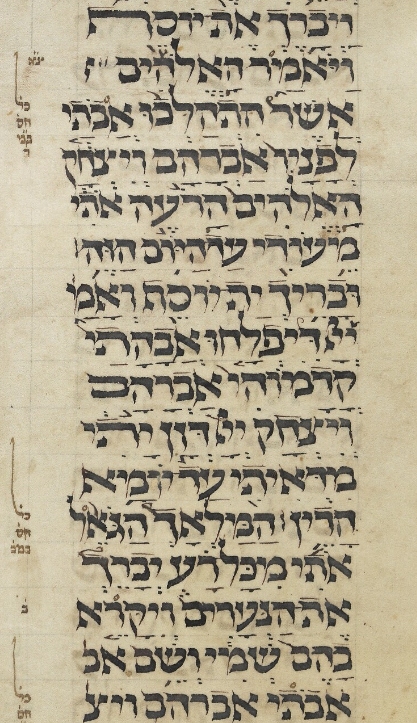 ויברך את יוסף
ויאמר האלהים
אשר התהלכו אבתי
לפניו אברהם ויצחק
האלהים הרעה אתי
מעודי עד היום הזה
ובריך ית יוסף ואמ
ייי דיפלחו אבהתי
קדמוהי אברהם
ויצחק ייי דזן יתי
מדאיתי עד יומא
הדין המלאך הגאל
אתי מכל רע יברך
את הנערים ויקרא
בהם שמי ושם אב
אבתי אברהם ויצ